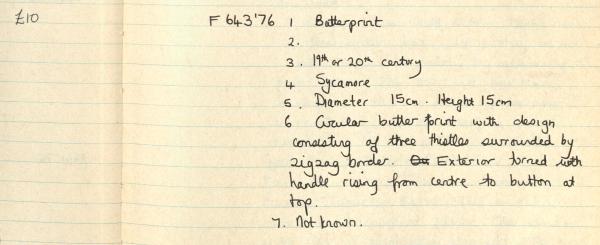 £10 F 643'76 1 Butterprint
2.
3. 19th or 20th century
4 Sycamore
5. Diameter 15cm. Height 15cm
6 Circular butter print with design
consisting of three thistles surrounded by
zigzag border. Exterior turned with
handle rising from centre to button at
top.
7. Not known.